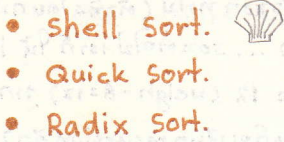 • Shell Sort.
• Quick Sort.
• Radix Sort.